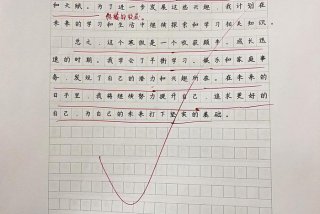 和天赋。为了进一步发展这些兴趣，我计划在
积极的收获。
未来的学习和生活中继续探索和学习相关知识。
总之，这个寒假是一个收获颇丰、成长迅
速的时期。我学会了平衡学习、娱乐和家庭事
务，发现了自己的潜力和兴趣所在。在未来的
日子里，我将继续努力提升自己，追求更好的
自己，为自己的未来打下坚实的基础。